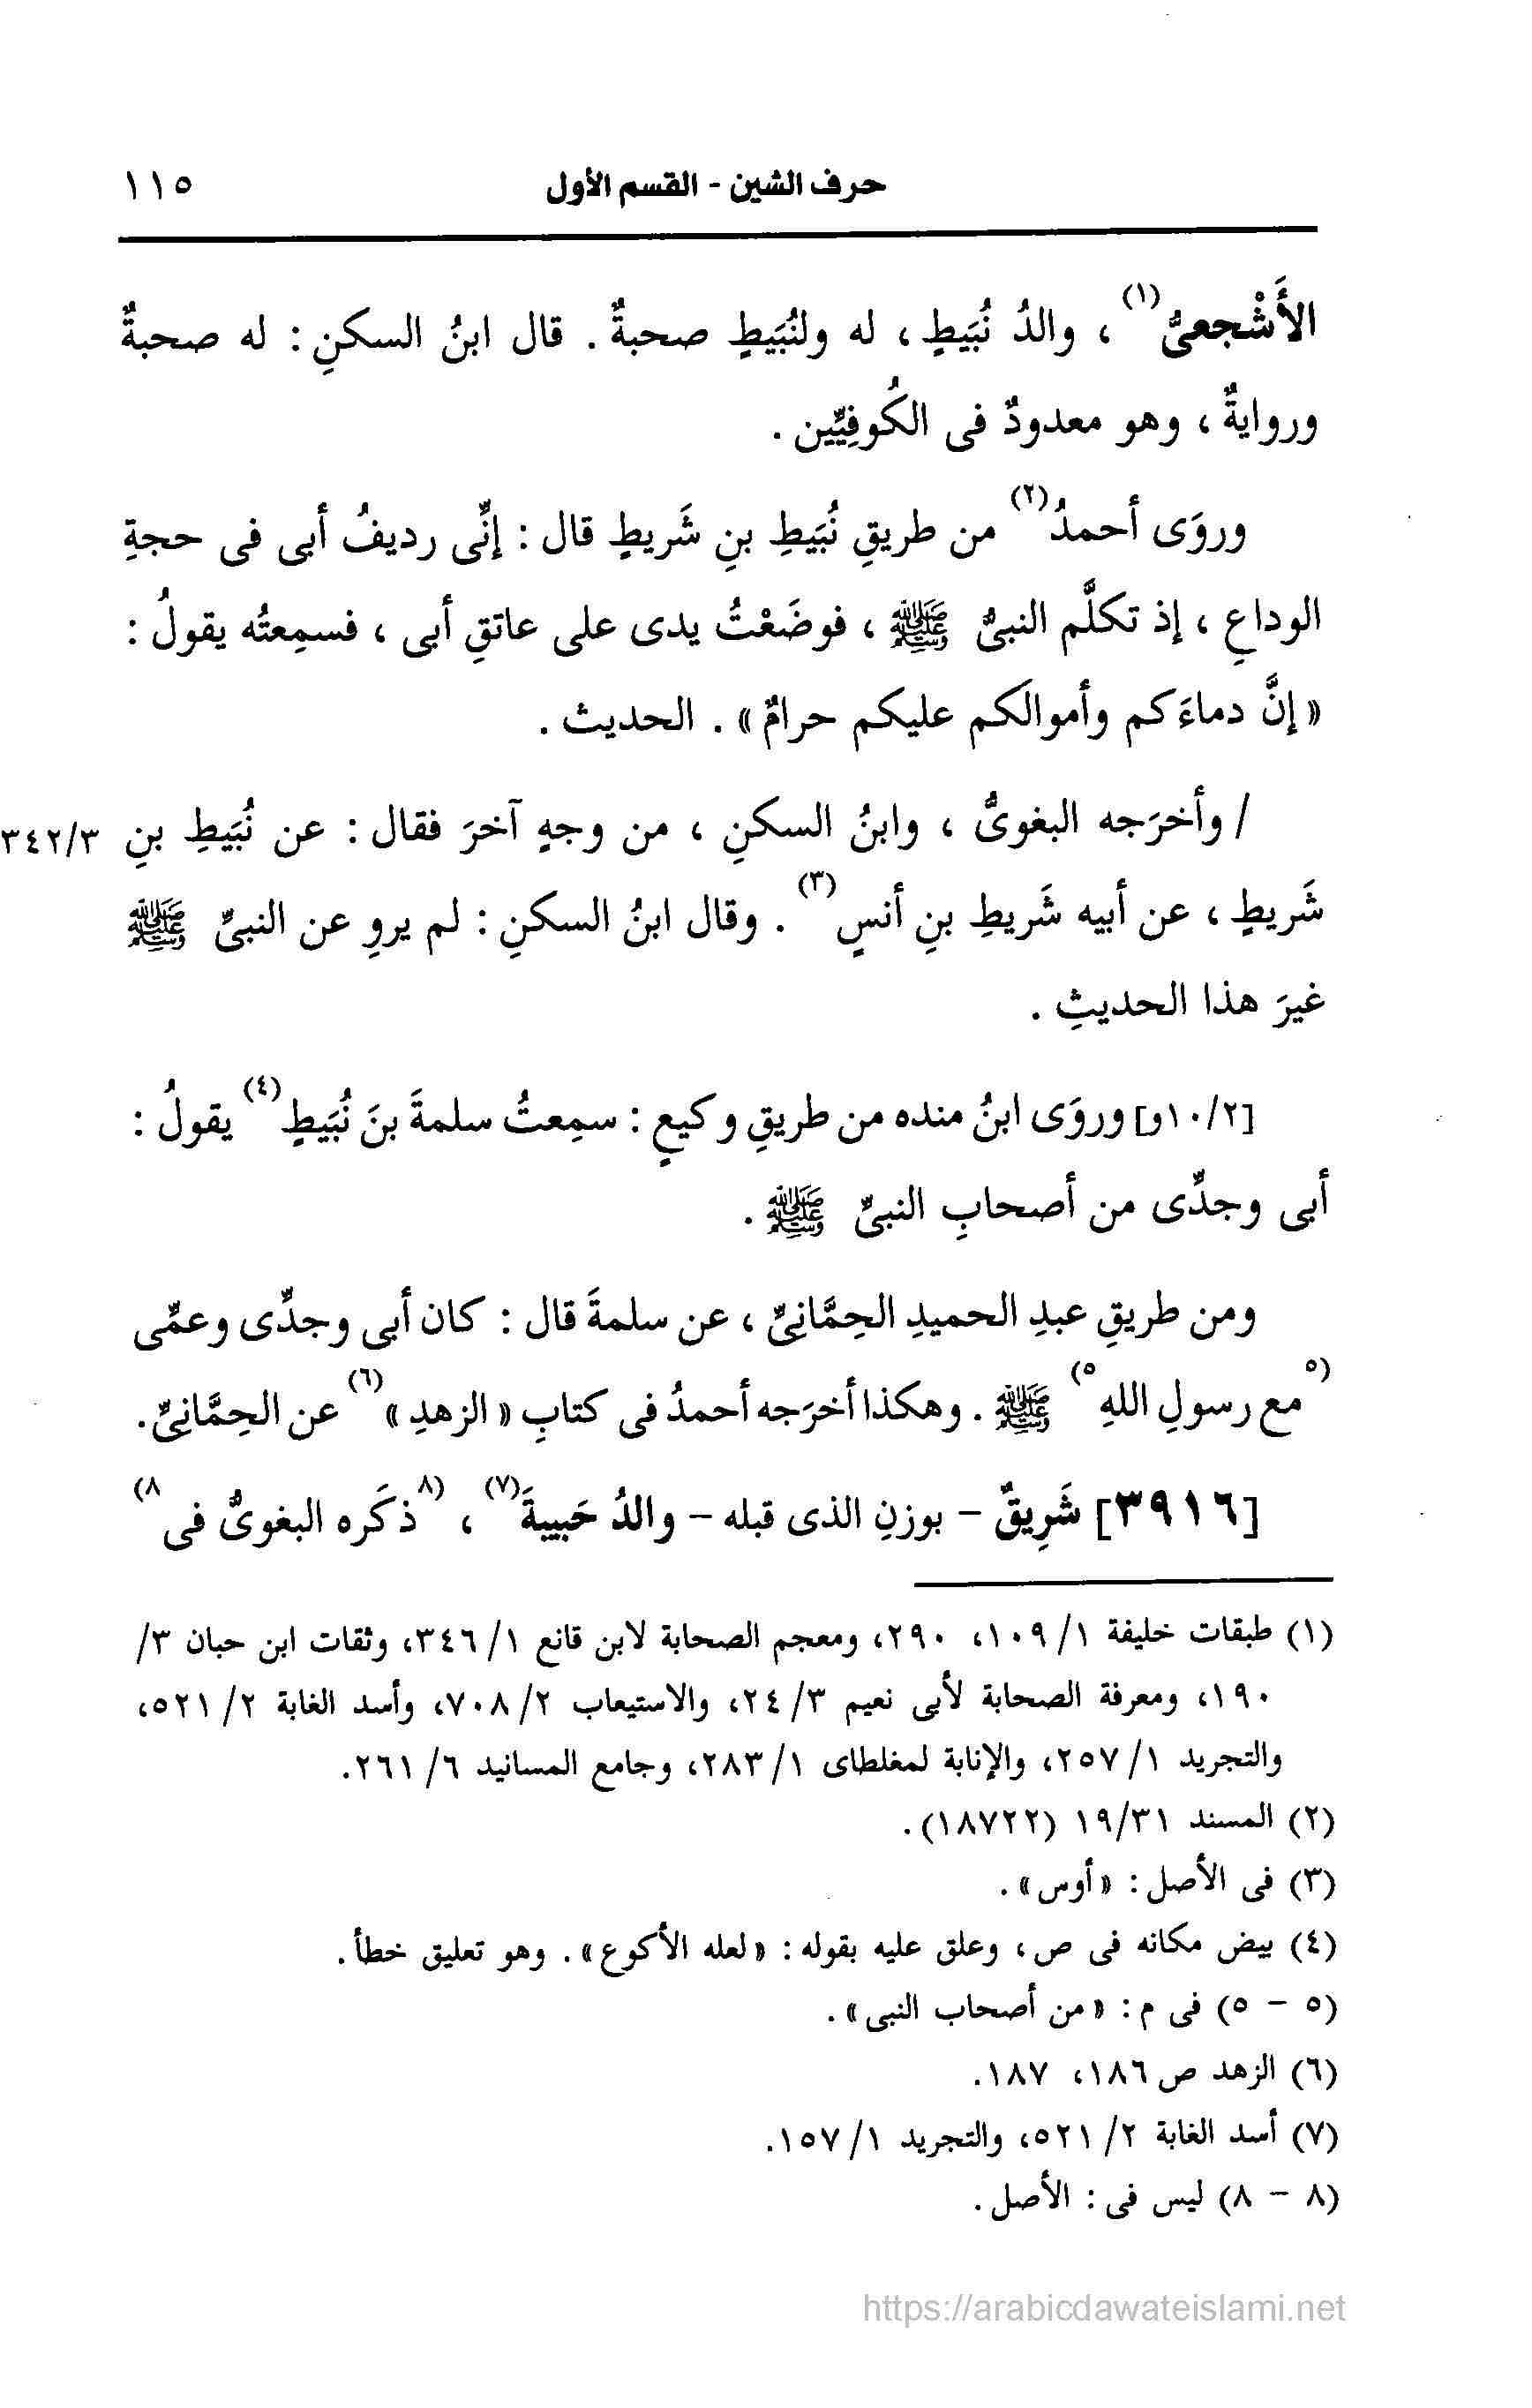 حرف الشين - القسم الأول ١١٥
الأَشْجعىُّ(١) ، والدُ نُبَيطٍ ، له ولنُبَيطٍ صحبةٌ . قال ابنُ السكنِ : له صحبةٌ
وروايةٌ ، وهو معدودٌ فى الكُوفِيِّين .
وروَى أحمدُ(٢) من طريقِ نُبَيطِ بنِ شَريطٍ قال : إنِّى رديفُ أبى فى حجةِ
الوداعِ ، إذ تكلَّم النبىُّ ﷺ ، فوضَعْتُ يدى على عاتقِ أبى ، فسمِعتُه يقولُ :
« إنَّ دماءَكم وأموالكم عليكم حرامٌ » . الحديث .
/ وأخرَجه البغوىُّ ، وابنُ السكنِ ، من وجهٍ آخرَ فقال : عن نُبَيطِ بنِ ٣٤٢/٣
شَريطٍ ، عن أبيه شَريطِ بنِ أنسٍ(٣) . وقال ابنُ السكنِ : لم يروِ عن النبىِّ ﷺ
غيرَ هذا الحديثِ .
[١٠/٢و] وروَى ابنُ منده من طريقِ وكيعٍ : سمِعتُ سلمةَ بنَ نُبَيطٍ(٤) يقولُ :
أبى وجدِّى من أصحابِ النبىِّ ﷺ .
ومن طريقِ عبدِ الحميدِ الحِمَّانِىِّ ، عن سلمةَ قال : كان أبى وجدِّى وعمِّى
(٥مع رسولِ اللهِ٥) ﷺ . وهكذا أخرَجه أحمدُ فى كتابِ « الزهدِ »(٦) عن الحِمَّانِىِّ .
[٣٩١٦] شَرِيقٌ - بوزنِ الذى قبله - والدُ حَبيبةَ(٧) ، (٨ذكَره البغوىُّ فى٨)
(١) طبقات خليفة ١/ ١٠٩، ٢٩٠، ومعجم الصحابة لابن قانع ١/ ٣٤٦، وثقات ابن حبان ٣/
١٩٠، ومعرفة الصحابة لأبى نعيم ٣/ ٢٤، والاستيعاب ٢/ ٧٠٨، وأسد الغابة ٢/ ٥٢١،
والتجريد ١/ ٢٥٧، والإنابة لمغلطاى ١/ ٢٨٣، وجامع المسانيد ٦/ ٢٦١.
(٢) المسند ١٩/٣١ (١٨٧٢٢).
(٣) فى الأصل : « أوس » .
(٤) بيض مكانه فى ص ، وعلق عليه بقوله : « لعله الأكوع » . وهو تعليق خطأ .
(٥ - ٥) فى م : « من أصحاب النبى » .
(٦) الزهد ص ١٨٦، ١٨٧.
(٧) أسد الغابة ٢/ ٥٢١، والتجريد ١/ ١٥٧.
(٨ - ٨) ليس فى : الأصل .
https://arabicdawateislami.net